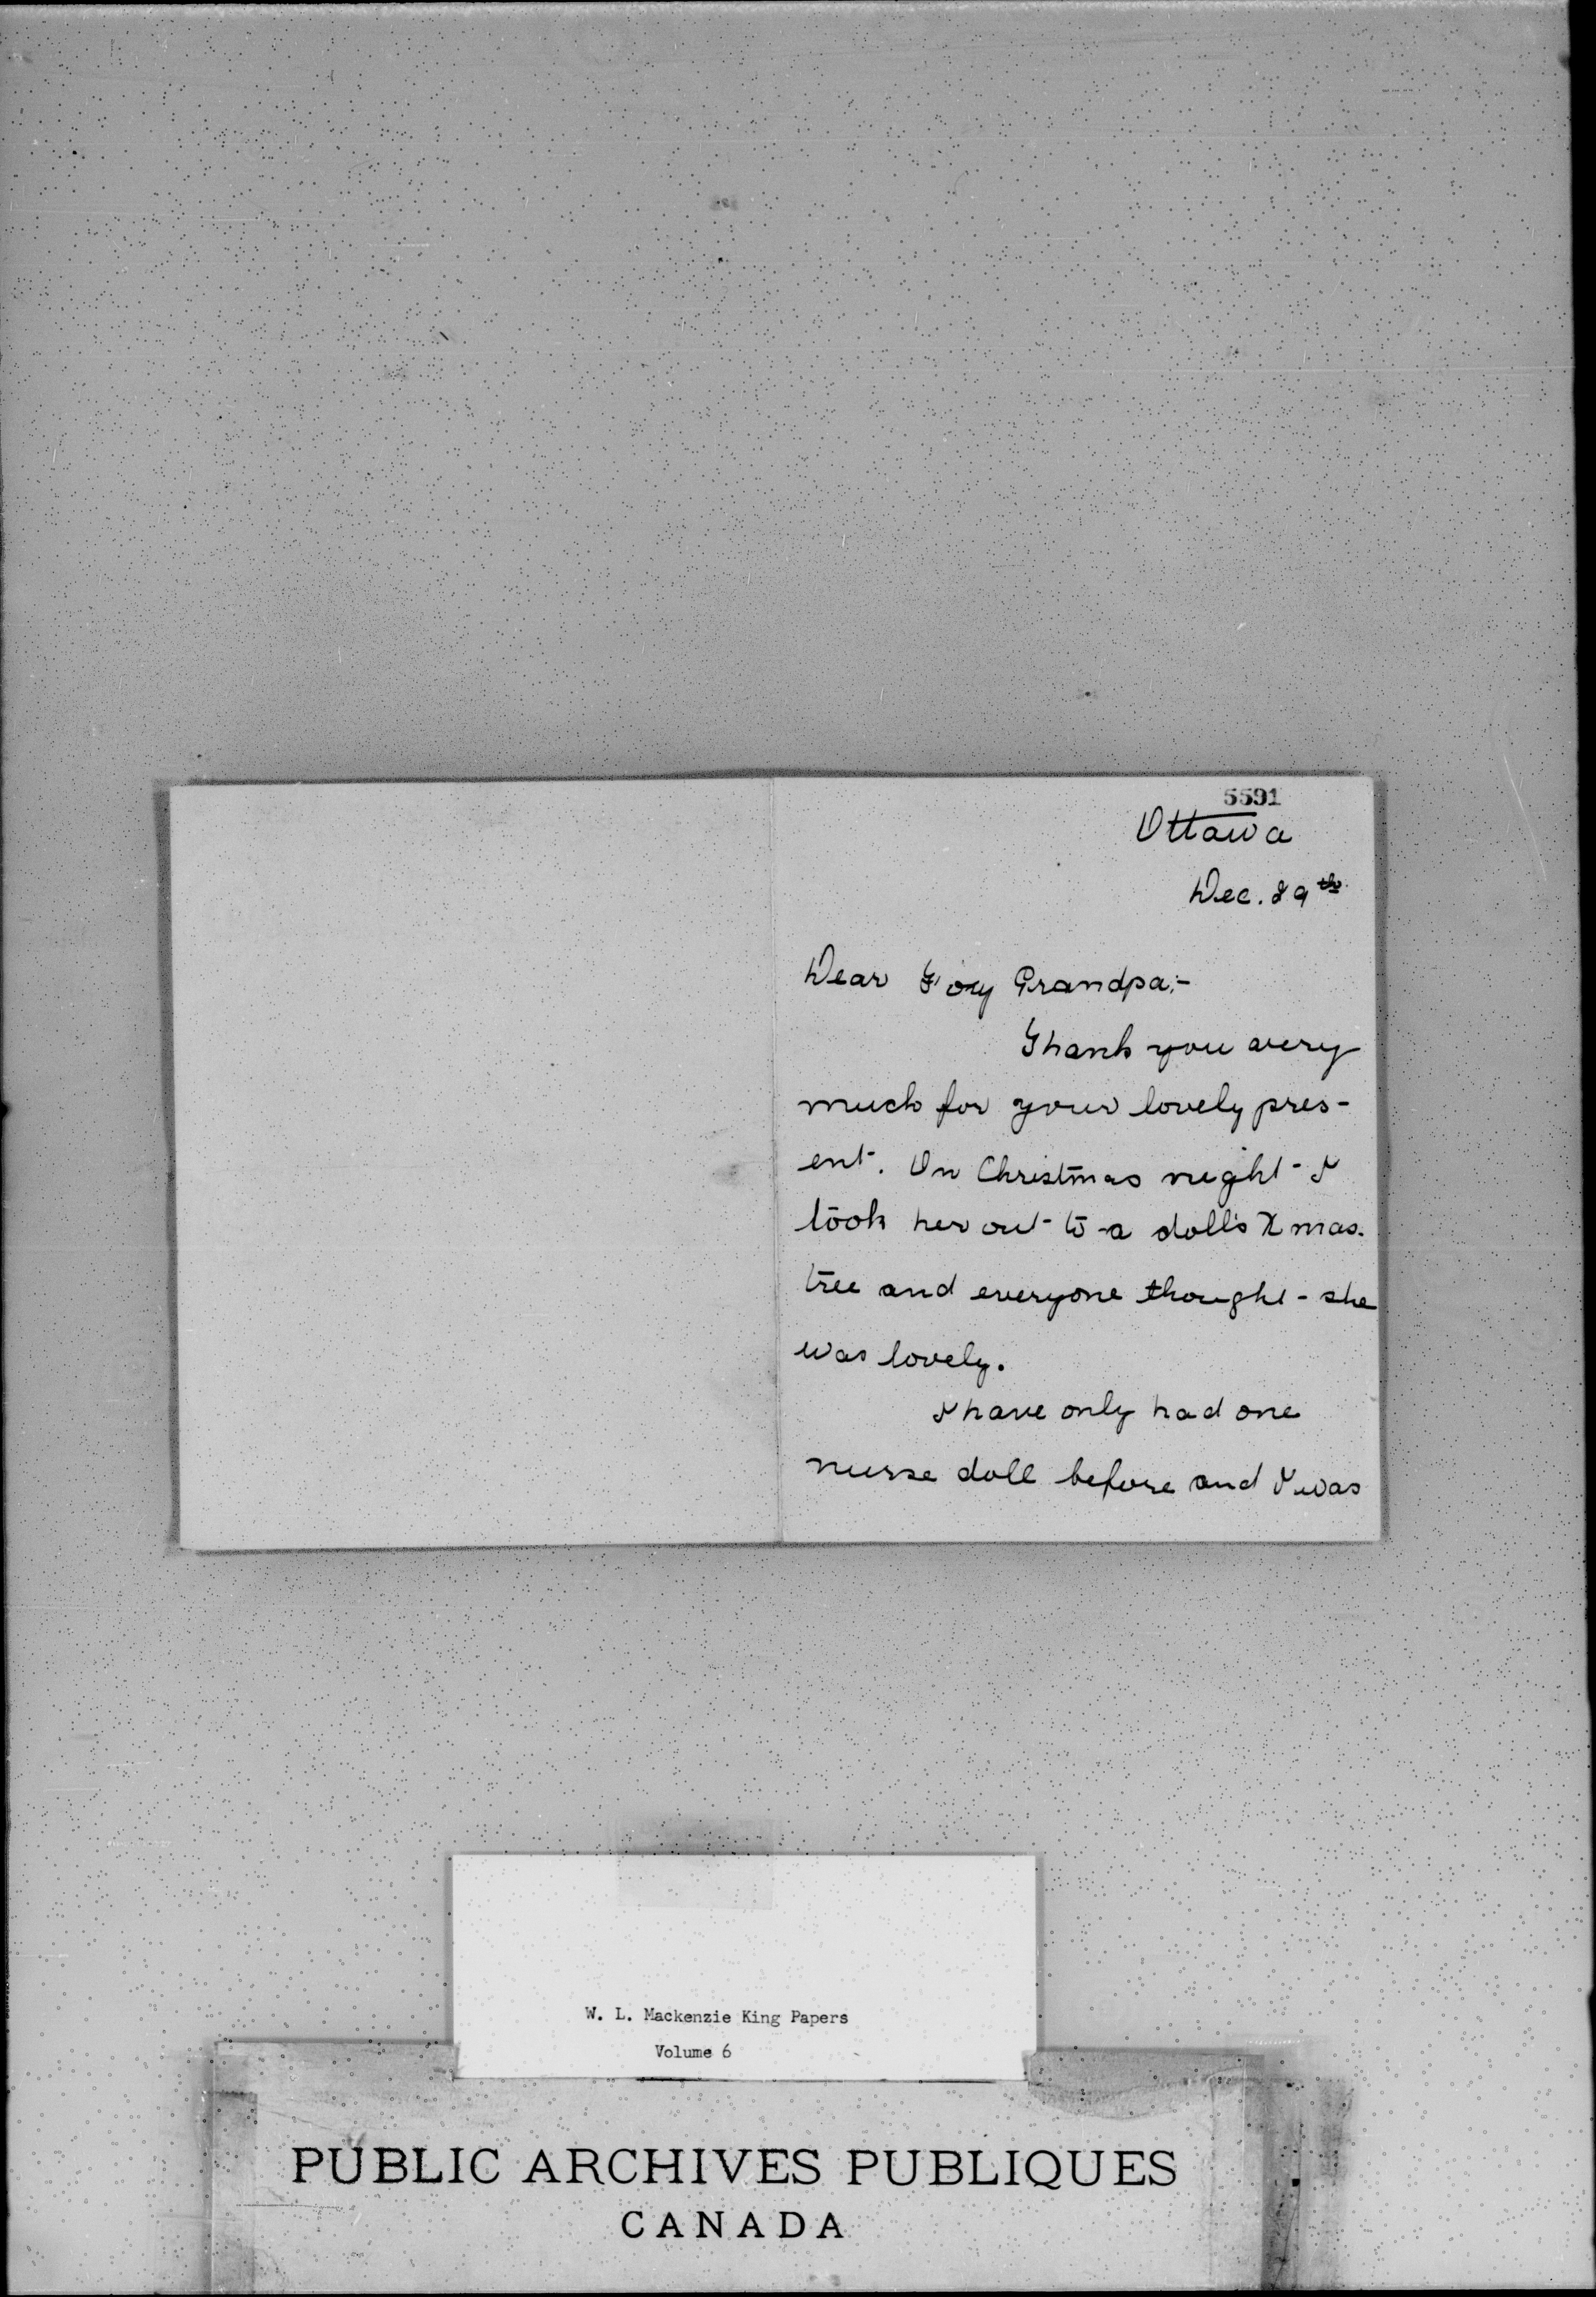 5591
Ottawa
Dec. 29th
Dear Foxy Grandpa:-
Thank you very
much for your lovely pres-
ent. On Christmas night I
took her out to a doll's Xmas.
tree and everyone thought she
was lovely.
I have only had one
nurse doll before and I was
W. L. Mackenzie King Papers
Volume 6
PUBLIC ARCHIVES PUBLIQUES
CANADA